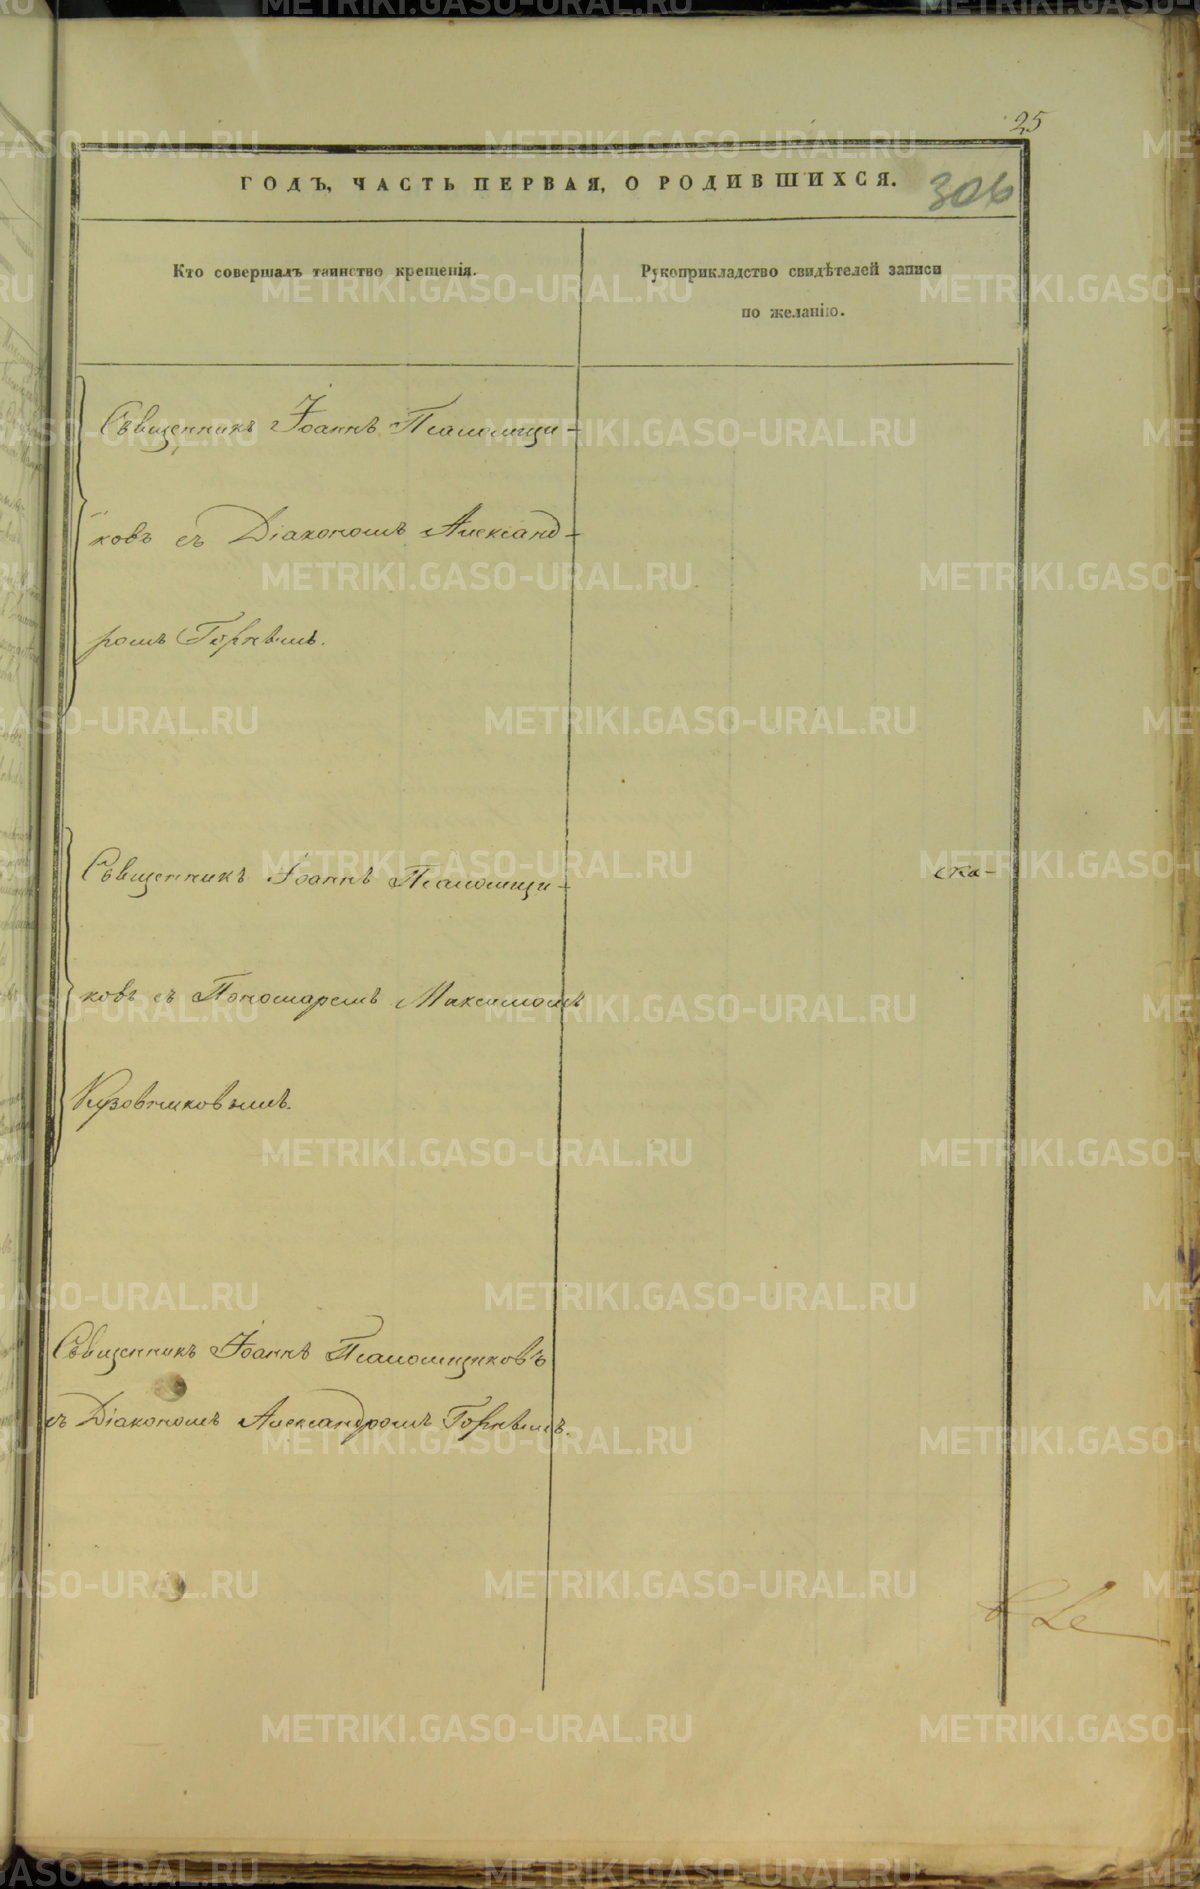 25
ГОДЪ, ЧАСТЬ ПЕРВАЯ, О РОДИВШИХСЯ.
306
Кто совершалъ таинство крещенія.
Рукоприкладство свидѣтелей записи
по желанію.
Священникъ Іоаннъ Псаломщи-
ковъ съ Діакономъ Александ-
ромъ Горнѣмъ.
Священникъ Іоаннъ Псаломщи-
ковъ съ Пономаремъ Максимомъ
Кузовниковымъ.
Священникъ Іоаннъ Псаломщиковъ
съ Діакономъ Александромъ Горнѣмъ.
ска-
METRIKI.GASO-URAL.RU